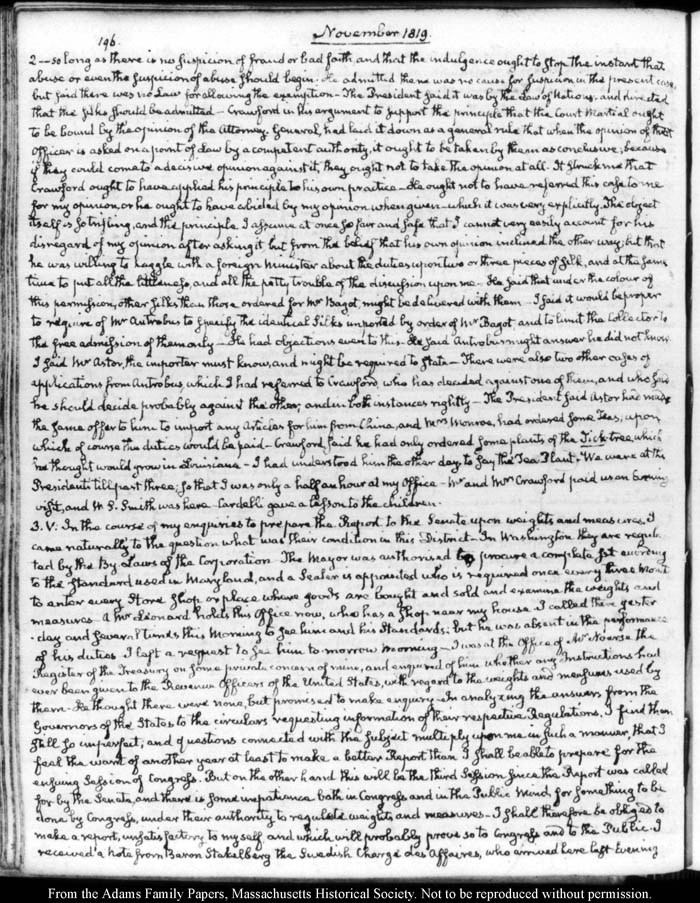 196.
November 1819.
2 -- so long as there is no suspicion of fraud or bad faith, and that the indulgence ought to stop the instant that
abuse or even the suspicion of abuse should begin. He admitted there was no cause for suspicion in the present case
but said there was no Law for allowing the exemption - The President said it was by the Law of Nations, and directed
that the silks should be admitted - Crawford in his argument to support the principle that the Court Martial ought
to be bound by the opinion of the Attorney General, had laid it down as a general rule that when the opinion of that
Officer is asked on a point of Law by a competent authority, it ought to be taken by them as conclusive; because
if they could come to a decisive opinion against it, they ought not to take the opinion at all. It struck me that
Crawford ought to have applied his principle to his own practice - He ought not to have referred this case to me
for my opinion, or he ought to have abided by my opinion when given - which it was very explicitly. The object
itself is so trifling, and the principle I assume at once so fair and safe that I cannot very easily account for his
disregard of my opinion after asking it but from the belief that his own opinion inclined the other way; but that
he was willing to haggle with a foreign Minister about the duties upon two or three pieces of silk, and at the same
time to put all the littleness, and all the petty trouble of the discussion upon me - He said that under the colour of
this permission, other silks than those ordered for Mr Bagot, might be delivered with them - I said it would be proper
to require of Mr Antrobus to specify the identical Silks imported by order of Mr Bagot, and to limit the Collector to
the free admission of them only - He had objections even to this - He said Antrobus might answer he did not know.
I said Mr Astor, the importer must know, and might be required to state - There were also two other cases of
applications from Antrobus, which I had referred to Crawford, who has decided against one of them, and who said
he should decide probably against the other; and in both instances rightly - The President said Astor had made
the same offer to him to import any Articles for him from China, and Mrs Monroe, had ordered some Teas; upon
which of course the duties would be paid - Crawford said he had only ordered some plants of the Tick-tree, which
he thought would grow in Louisiana - I had understood him the other day to say the Tea Plant - We were at the
Presidents till past three; so that I was only a half an hour at my Office - Mr and Mrs Crawford paid us an Evening
visit, and W. S. Smith was here - Cardelli gave a lesson to the children.
3. V: In the course of my enquiries to prepare the Report to the Senate upon weights and measures, I
came naturally to the question what was their condition in this District - In Washington they are regula-
ted by the By Laws of the Corporation - The Mayor was authorised to procure a complete set according
to the Standard used in Maryland, and a Sealer is appointed who is required once every three Months
to enter every Store Shop or place where goods are bought and sold and examine the weights and
measures - A Mr Leonard holds this Office now, who has a shop near my house. I called there yester-
-day and several times this Morning to see him and his Standards; but he was absent in the performance
of his duties I left a request to see him to-morrow morning - I was at the Office of Mr Nourse the
Register of the Treasury on some private concern of mine, and enquired of him whether any Instructions had
ever been given to the Revenue Officers of the United States, with regard to the weights and measures used by
them - He thought there were none, but promised to make enquiry - In analyzing the answers from the
Governors of the States to the circulars requesting information of their respective Regulations, I find them
still so imperfect, and questions connected with the subject multiply upon me in such a manner, that I
feel the want of another year at least to make a better Report than I shall be able to prepare for the
ensuing Session of Congress. But on the other hand this will be the third Session since the Report was called
for by the Senate, and there is some impatience both in Congress and in the Public Mind, for something to be
done by Congress, under their authority to regulate weights and measures - I shall therefore be obliged to
make a report, unsatisfactory to myself and which will probably prove so to Congress and to the Public - I
received a Note from Baron Stakelberg the Swedish Charge des Affaires, who arrived here last Evening
From the Adams Family Papers, Massachusetts Historical Society. Not to be reproduced without permission.